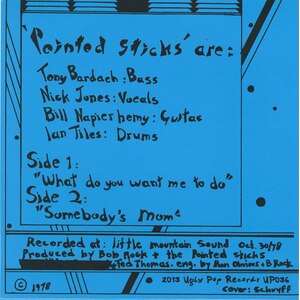 'Pointed Sticks' are:
Tony Bardach: Bass
Nick Jones: Vocals
Bill Napier hemy: Guitar
Ian Tiles: Drums
Side 1:
"What do you want me to do"
Side 2:
"Somebody's Mom"
Recorded at: little mountain sound Oct. 30/78
Produced by Bob Rock + the Pointed Sticks
+Ted Thomas. eng. by Ron Obvious + B Rock.
© 1978
2013 Ugly Pop Records UP036
cover: Schruff